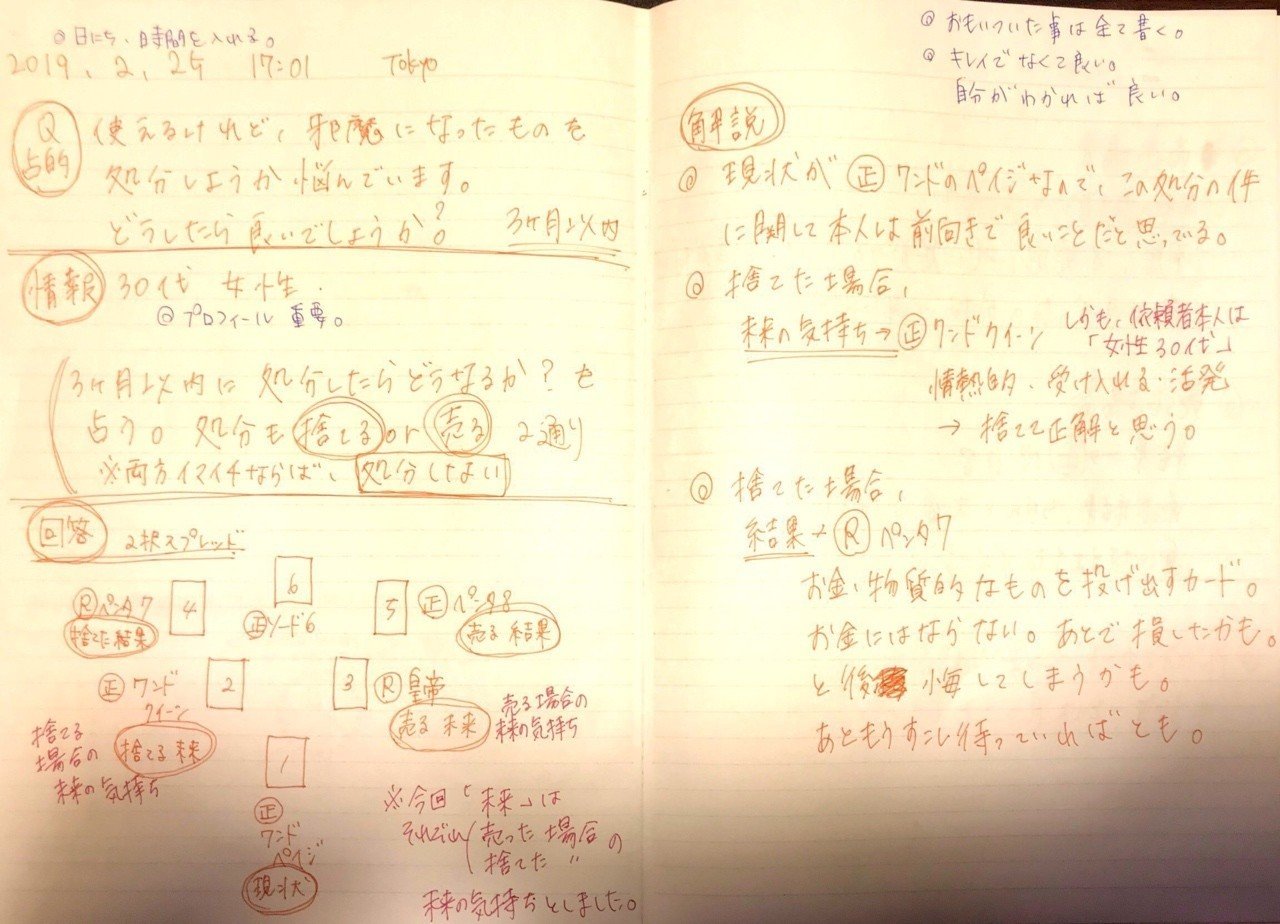 ◎日にち、時間を入れる。
2019, 2, 25 17:01 Tokyo
Q 占的 使えるけれど、邪魔になったものを
処分しようか悩んでいます。
どうしたら良いでしょうか？ 3ヶ月以内
情報 30代 女性.
◎プロフィール 重要。
3ヶ月以内に処分したらどうなるか？を
占う。処分も捨てるor売る 2通り
※両方イマイチならば、処分しない
回答 2択スプレッド
Ⓡペンタ7 4
捨てた結果
6
㊣ソード6
5 ㊣ペンタ8
売る結果
㊣ワンドクイーン 2
捨てる未来
捨てる場合の未来の気持ち
3 Ⓡ皇帝
売る未来
売る場合の未来の気持ち
1
㊣
ワンド
ペイジ
現状
※今回「未来」は
それぞれ(売った場合の
捨てた 〃
未来の気持ちとしました。
◎おもいついた事は全て書く。
◎キレイでなくて良い。
自分がわかれば良い。
解説
◎現状が㊣ワンドのペイジなので、この処分の件
に関して本人は前向きで良いことだと思っている。
◎捨てた場合、
未来の気持ち→㊣ワンドクイーン
しかも、依頼者本人は
「女性30代」
情熱的・受け入れる・活発
→捨てて正解と思う。
◎捨てた場合、
結果→Ⓡペンタ7
お金、物質的なものを投げ出すカード。
お金にはならない。あとで損したかも。
と後悔してしまうかも。
あともうすこし待っていればとも。